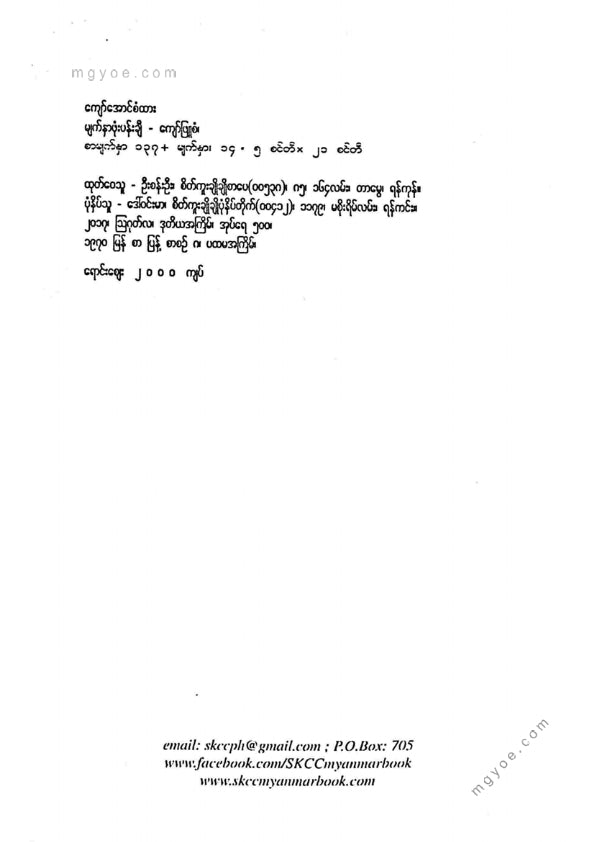 mgyoe.com
ကျော်အောင်စံထား
မျက်နှာဖုံးပန်းချီ - ကျော်ဖြူစံ၊
စာမျက်နှာ ၁၃၇+ မျက်နှာ၊ ၁၄ . ၅ စင်တီ× ၂၁ စင်တီ
ထုတ်ဝေသူ - ဦးစန်းဦး၊ စိတ်ကူးချိုချိုစာပေ(၀၀၅၃၈)၊ ဂ၅၊ ၁၆၄လမ်း၊ တာမွေ၊ ရန်ကုန်။
ပုံနှိပ်သူ - ဒေါ်ဝင်းမာ၊ စိတ်ကူးချိုချိုပုံနှိပ်တိုက်(၀၀၄၁၂)၊ ၁၁၇၉၊ မစိုးရိမ်လမ်း၊ ရန်ကင်း။
၂၀၁၇၊ ဩဂုတ်လ၊ ဒုတိယအကြိမ်၊ အုပ်ရေ ၅၀၀၊
၁၉၇၀ မြန် စာ ပြန့် စာစဉ် ၈၊ ပထမအကြိမ်၊
ရောင်းဈေး ၂ ၀ ၀ ၀ ကျပ်
email: skccph@gmail.com ; P.O.Box: 705
www.facebook.com/SKCCmyanmarbook
www.skccmyanmarbook.com
mgyoe.com